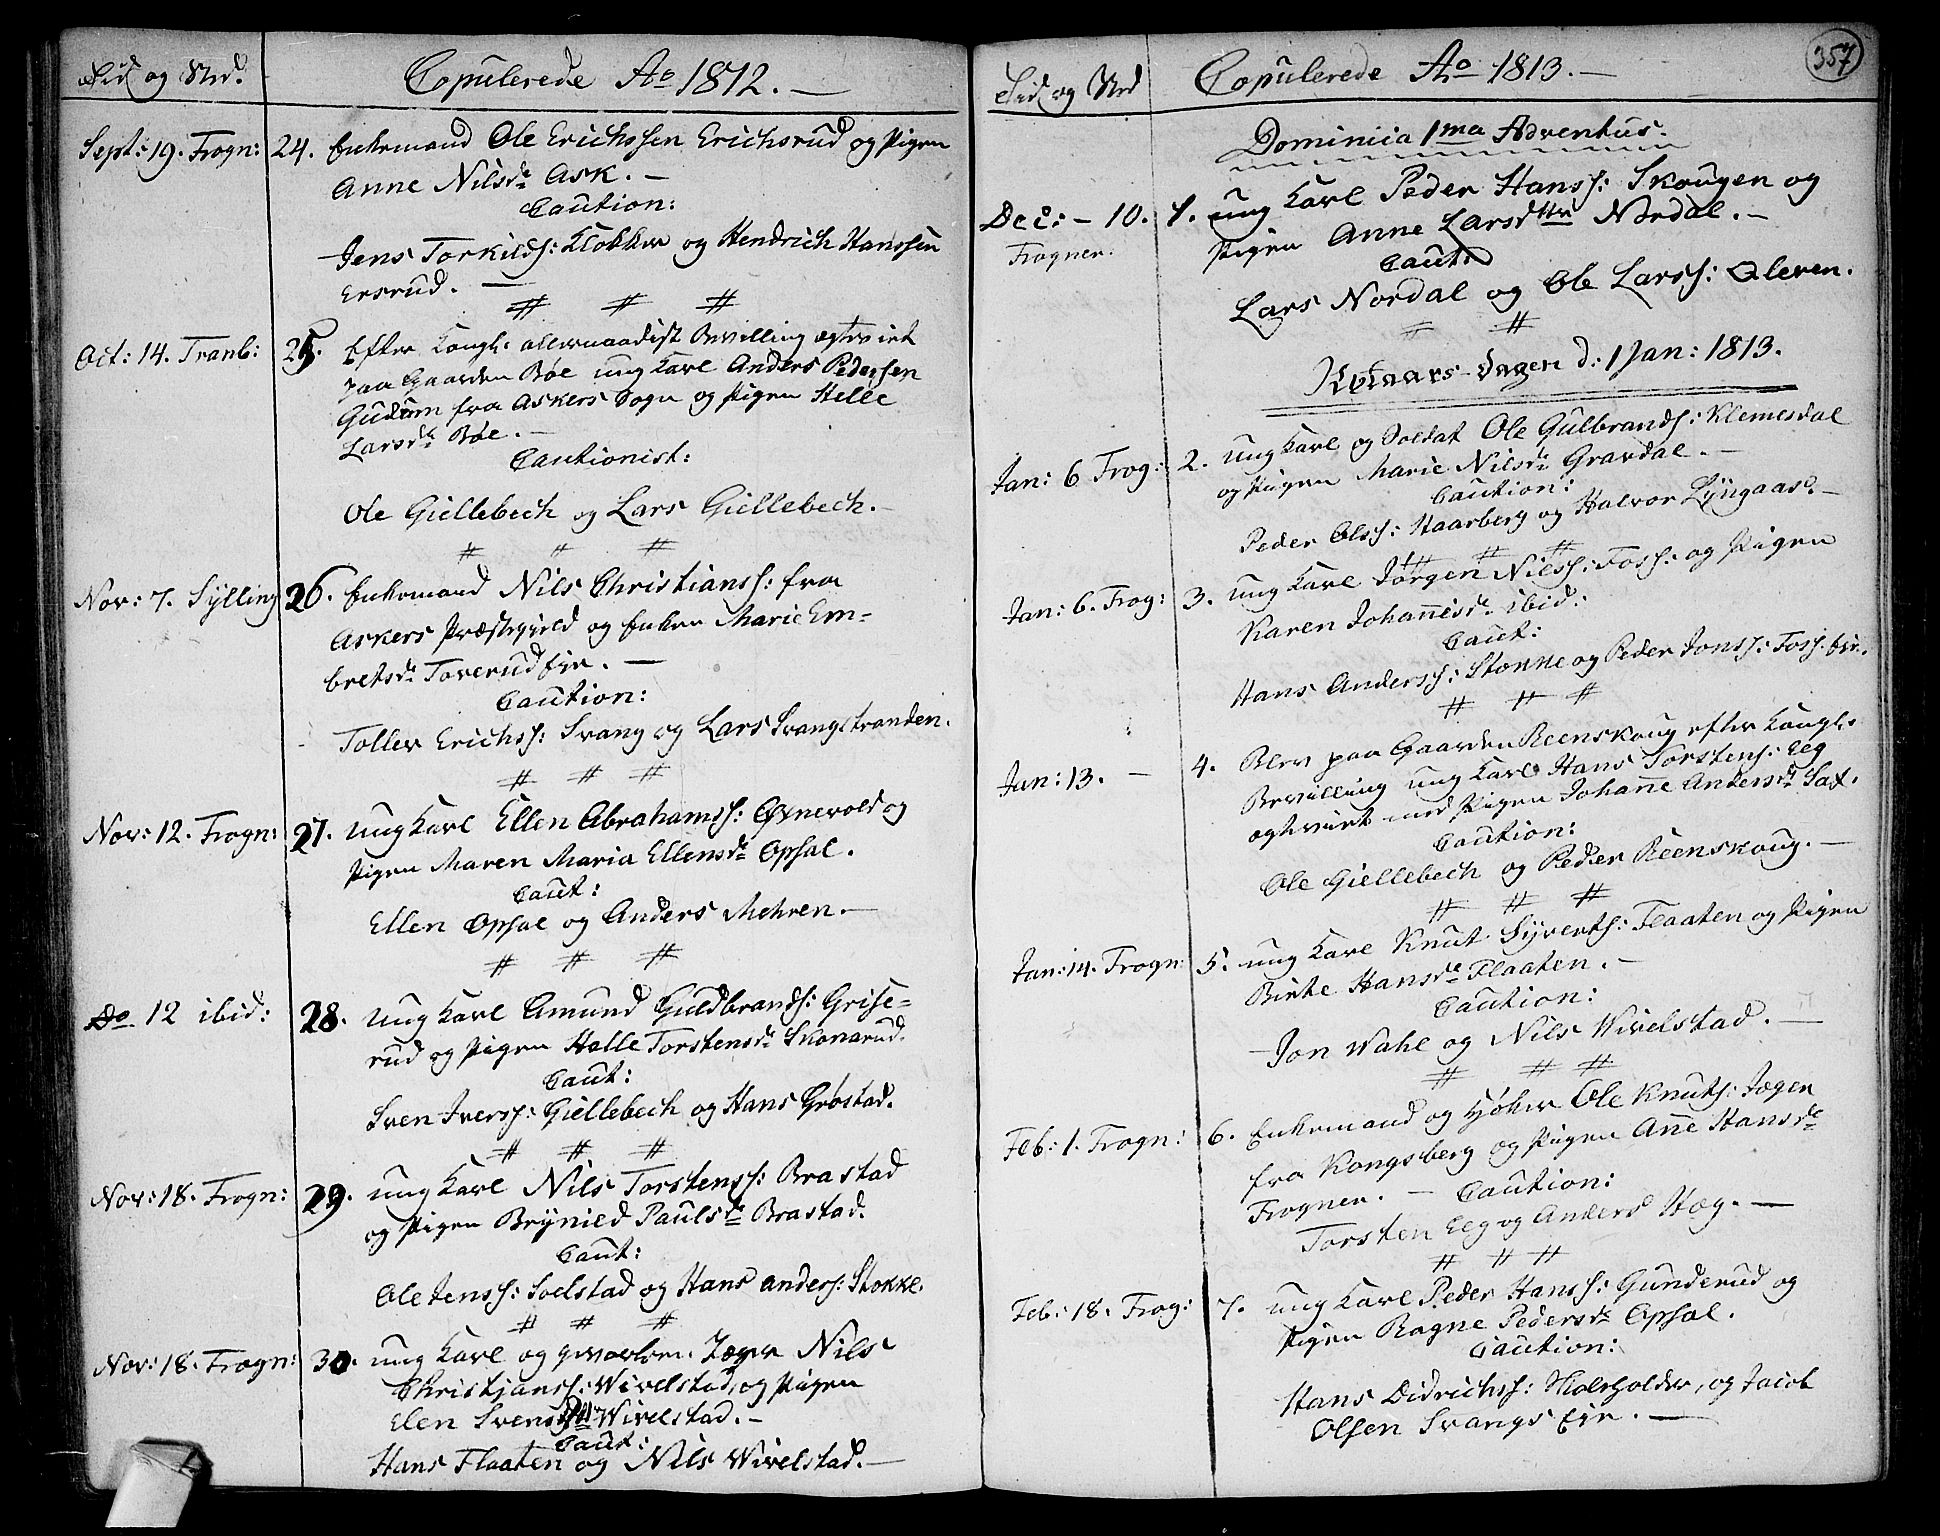 Tid og Sted.
Copulerede Ao 1812. —
Sept: 19. Frogn: 24. Enkemand Ole Erichssen Erichsrud og Pigen
Anne Nilsdr Ask. —
Caution:
Jens Torkilds: Klokker og Hendrich Hanssen
Ersrud. —
# # #
Oct: 14. Tranb: 25. Efter Kongl: allernaadigst Bevilling egteviet
paa Gaarden Bøe ung Karl Anders Pedersen
Gudum fra Askers Sogn og Pigen Helle
Larsdr Bøe. —
Cautionist:
Ole Giellebech og Lars Giellebech. —
# # #
Nov: 7. Sylling 26. Enkemand Nils Christianss: fra
Askers Præstegield og Enken Marie Em-
bretsdr Toverud Eje. —
Caution:
Tollev Erichss: Svang og Lars Svangstranden.
# # #
Nov: 12. Frogn: 27. ung Karl Ellen Abrahamss: Oxnevold og
Pigen Maren Maria Ellensdr Opsal.
Caut:
Ellen Opsal og Anders Mehren. —
# # #
Do 12 ibid: 28. ung Karl Amund Guldbrands: Grise-
rud og Pigen Halle Torstensdr Skonarud.
Caut:
Sven Iverss: Giellebech og Hans Grøstad.
# # #
Nov: 18. Frogn: 29. ung Karl Nils Torstenss: Brastad
og Pigen Brynild Paulsdr Brastad.
Caut:
Ole Jenss: Soelstad og Hans Anders: Stokke.
# # #
Nov: 18. Frogn: 30. ung Karl og gevorben Jæger Nils
Christjanss: Wivelstad, og Pigen
Elen Svensdtr Wivelstad. —
Caut:
Hans Flaaten og Nils Wivelstad. —
357
Tid og Sted
Copulerede Ao 1813. —
Dominica 1ma Adventus.
Dec: - 10. 1. ung Karl Peder Hanss: Skougen og
Frogner.
Pigen Anne Larsdttr Nordal. —
Caut:
Lars Nordal og Ole Larss: Oleren.
# #
Nytaars-Dagen d: 1 Jan: 1813.
Jan: 6 Frog: 2. ung Karl og Soldat Ole Gulbrands: Klemesdal
og Pigen Marie Nilsdr Gravdal. —
Caution:
Peder Olss: Haarberg og Halvor Lyngaas. —
# # #
Jan: 6. Frog: 3. ung Karl Jørgen Nilss: Foss: og Pigen
Karen Johannisdr ibid:
Caut:
Hans Anderss: Stonne og Peder Jonss: Foss. Eje.
# # #
Jan: 13. — 4. Blev paa Gaarden Reenskoug efter Kongl:
Bevilling ung Karl Hans Torstens: Eeg
egteviet med Pigen Johanne Andersdr Sax.
Caution:
Ole Giellebech og Peder Reenskoug. —
# # #
Jan: 14. Frogn: 5. ung Karl Knut Syverts: Flaaten og Pigen
Birte Hansdr Flaaten. —
Caution:
Jon Wahl og Nils Wivelstad. —
# # #
Feb: 1. Frogn: 6. Enkemand og Kjører Ole Knuts: Jægen
fra Kongsberg og Pigen Anne Hansdr
Frogner. — Caution:
Torsten Eeg og Anders Hæg. —
# # #
Feb: 18. Frog: 7. ung Karl Peder Hanss: Gunderud og
Pigen Ragne Pedersdr Opsal.
Caution:
Hans Didrichss: Holsholder, og Jacob
Olsen Svangs Eje. —